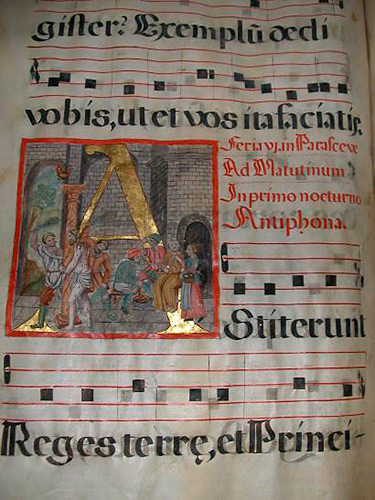 gister? Exemplū dedi
vobis, ut et vos ita faciatis.
Feria vj. in Parasceve
Ad Matutinum
In primo nocturno
Antiphona.
A
Stiterunt
Reges terrę, et Princi-